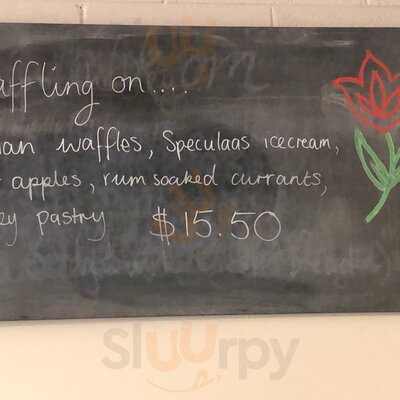 affling on....
ian waffles, Speculaas icecream,
apples, rum soaked currants,
ey pastry $15.50
Sluurpy